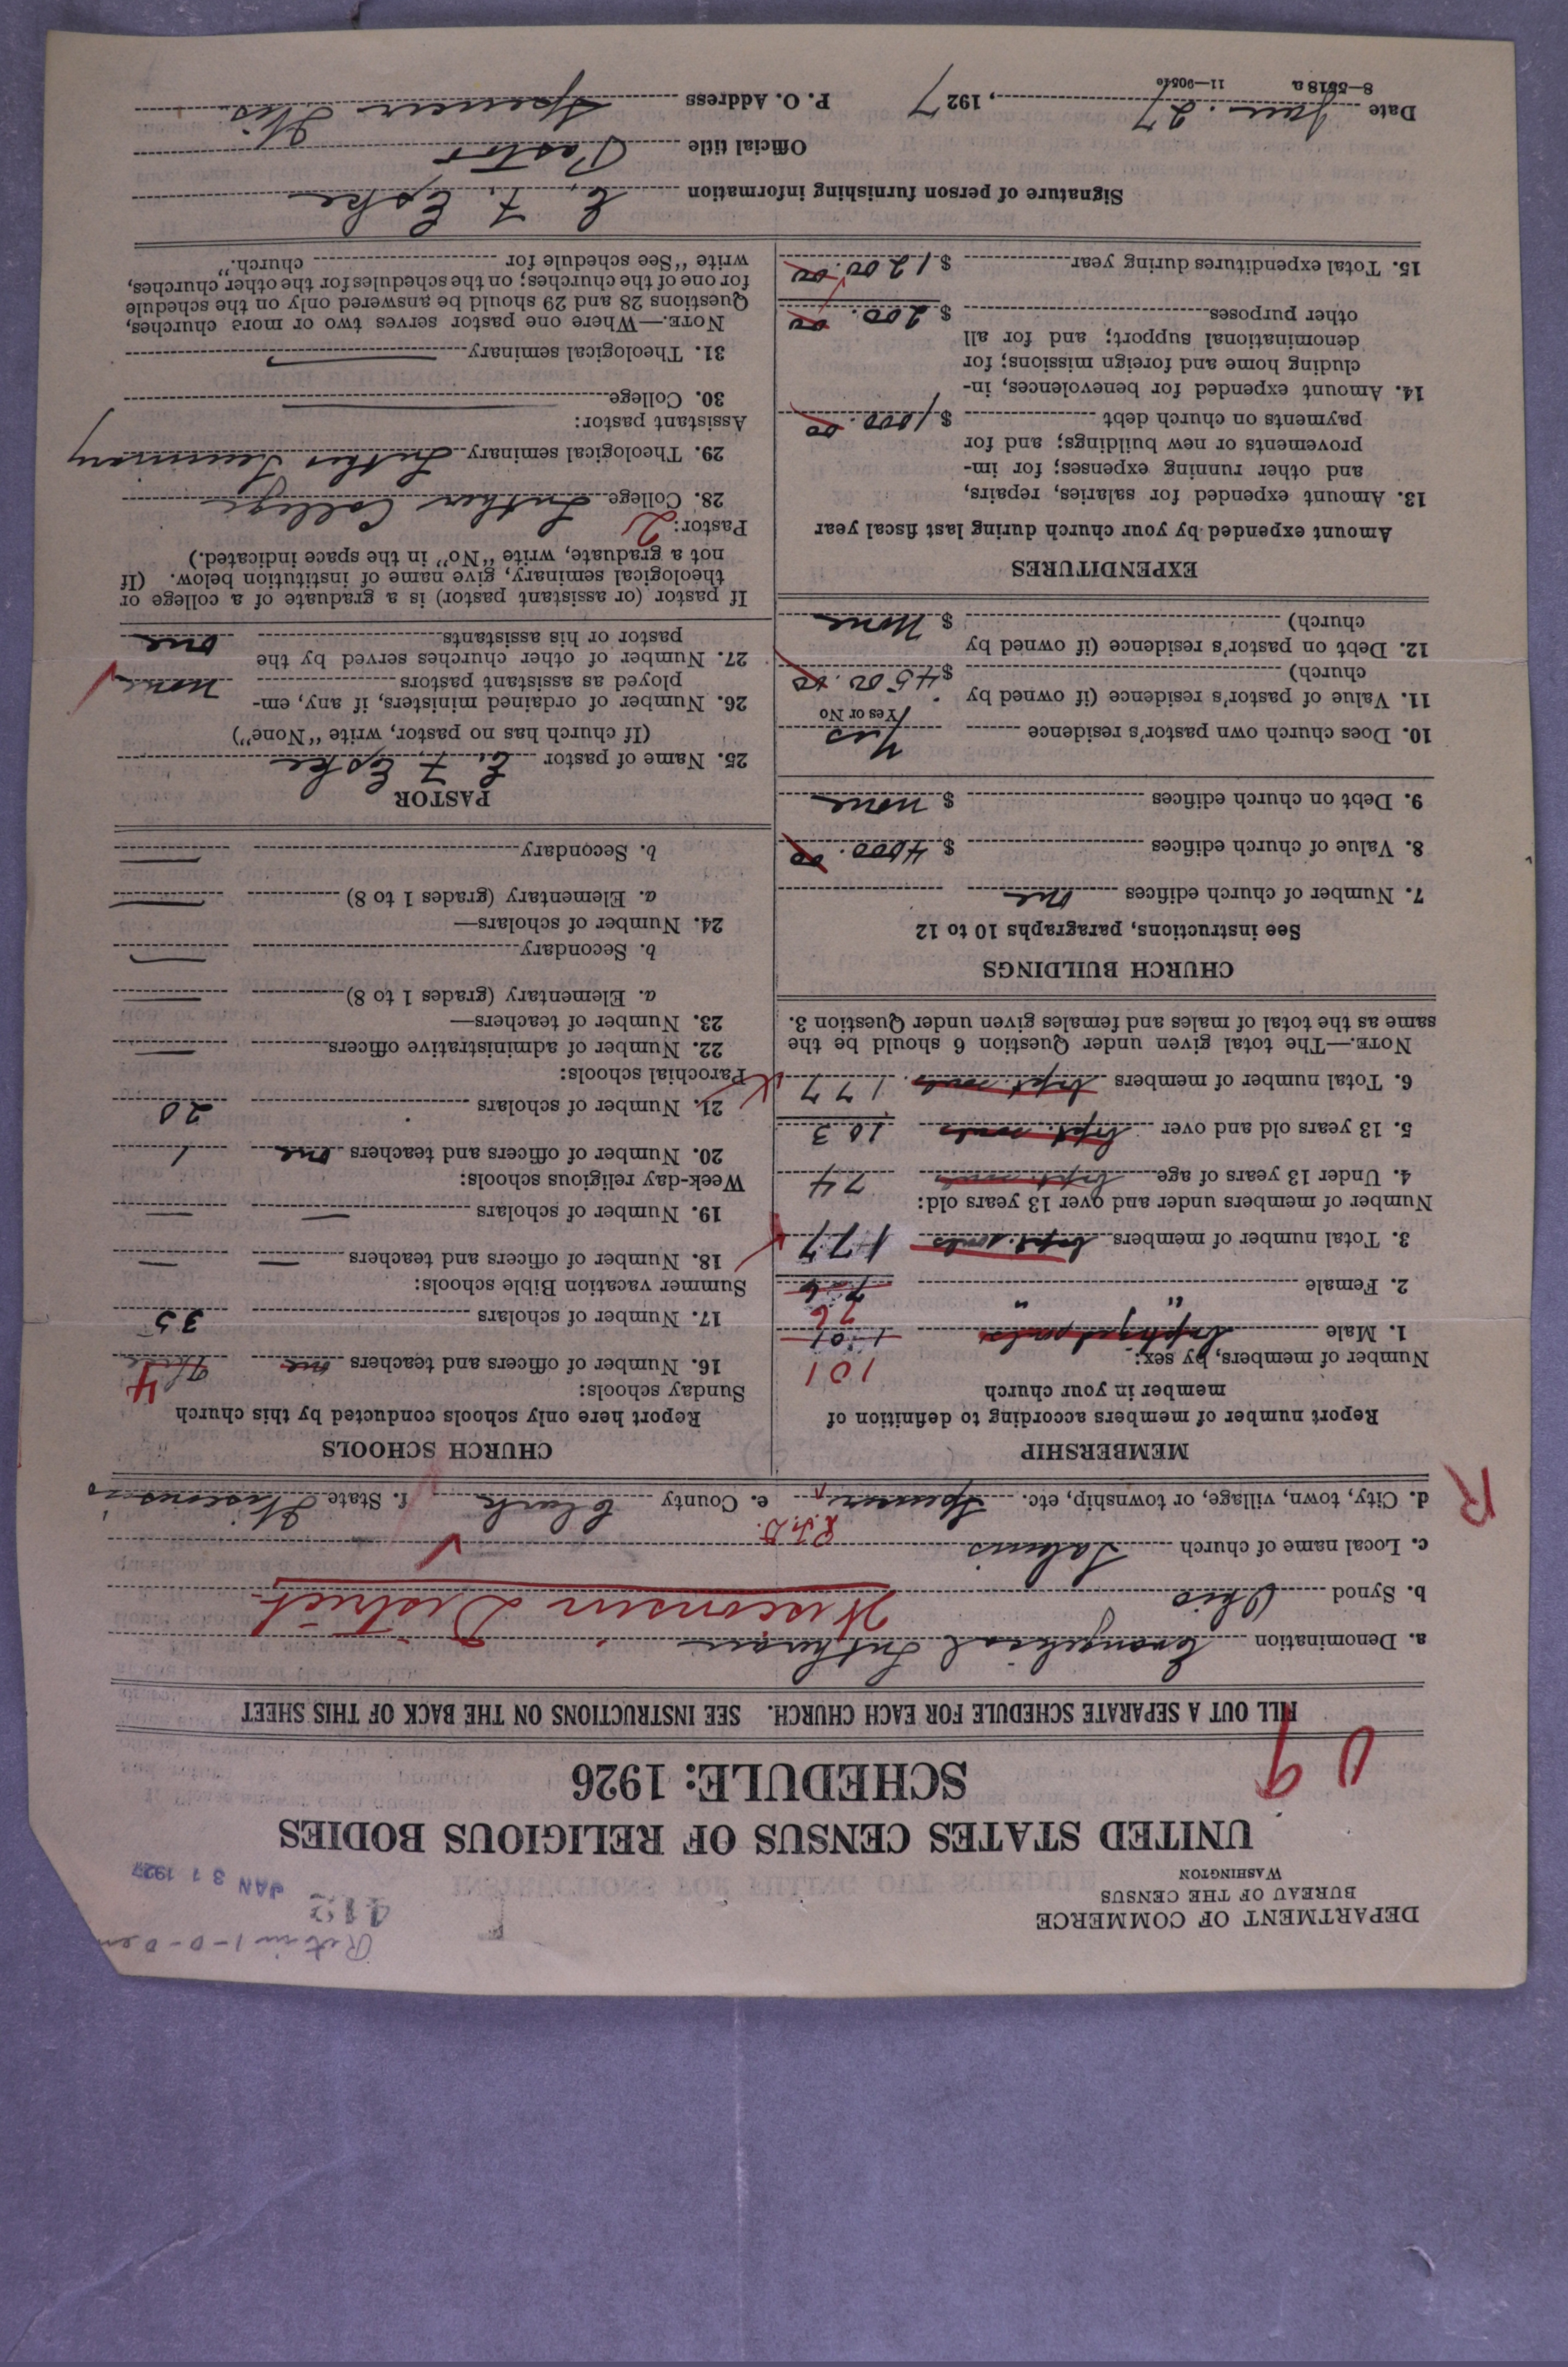 DEPARTMENT OF COMMERCE
BUREAU OF THE CENSUS
WASHINGTON
412
JAN 31 1927
UNITED STATES CENSUS OF RELIGIOUS BODIES
SCHEDULE: 1926
FILL OUT A SEPARATE SCHEDULE FOR EACH CHURCH. SEE INSTRUCTIONS ON THE BACK OF THIS SHEET
a. Denomination Evangelical Lutheran
b. Synod Ohio Wisconsin District
c. Local name of church Salems
R.F.D.
d. City, town, village, or township, etc. Spencer e. County Clark f. State Wisconsin
R
MEMBERSHIP
Report number of members according to definition of
member in your church
Number of members, by sex: 101
1. Male baptized souls 101
76
2. Female " " 76
3. Total number of members bapt. souls 177
Number of members under and over 13 years old:
4. Under 13 years of age bapt. souls 74
5. 13 years old and over bapt. souls 103
6. Total number of members bapt. souls 177
NOTE.—The total given under Question 6 should be the
same as the total of males and females given under Question 3.
CHURCH BUILDINGS
See instructions, paragraphs 10 to 12
7. Number of church edifices one
8. Value of church edifices $ 4000.00
9. Debt on church edifices $ none
10. Does church own pastor's residence Yes
Yes or No
11. Value of pastor's residence (if owned by
church) $ 4500.00
12. Debt on pastor's residence (if owned by
church) $ None
EXPENDITURES
Amount expended by your church during last fiscal year
13. Amount expended for salaries, repairs,
and other running expenses; for im-
provements or new buildings; and for
payments on church debt $ 1000.00
14. Amount expended for benevolences, in-
cluding home and foreign missions; for
denominational support; and for all
other purposes $ 200.00
15. Total expenditures during year $ 1200.00
CHURCH SCHOOLS
Report here only schools conducted by this church
Sunday schools: 4
16. Number of officers and teachers one
17. Number of scholars 35
Summer vacation Bible schools:
18. Number of officers and teachers — —
19. Number of scholars — —
Week-day religious schools:
20. Number of officers and teachers one 1
21. Number of scholars 20
Parochial schools:
22. Number of administrative officers —
23. Number of teachers—
a. Elementary (grades 1 to 8) —
b. Secondary —
24. Number of scholars—
a. Elementary (grades 1 to 8) —
b. Secondary —
PASTOR
25. Name of pastor E. F. Epke
(If church has no pastor, write "None")
26. Number of ordained ministers, if any, em-
ployed as assistant pastors none
27. Number of other churches served by the
pastor or his assistants one
If pastor (or assistant pastor) is a graduate of a college or
theological seminary, give name of institution below. (If
not a graduate, write "No" in the space indicated.)
Pastor: 2
28. College Luther College
29. Theological seminary Luther Seminary
Assistant pastor:
30. College —
31. Theological seminary —
NOTE.—Where one pastor serves two or more churches,
Questions 28 and 29 should be answered only on the schedule
for one of the churches; on the schedules for the other churches,
write "See schedule for church."
Signature of person furnishing information E. F. Epke
Official title Pastor
Date Jan. 27, 1927 P. O. Address Spencer Wis.
8—5518 a 11—9051